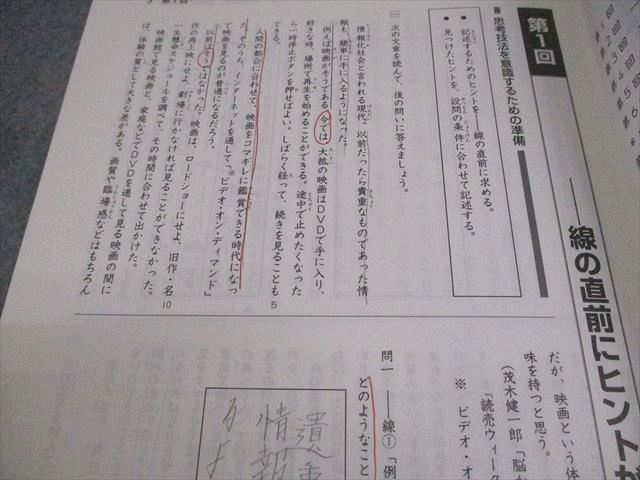 第1回
――線の直前にヒントが
■ 思考技法を意識するための準備
● 記述するためのヒントを――線の直前に求める。
● 見つけたヒントを、設問の条件に合わせて記述する。
一 次の文章を読んで、後の問いに答えましょう。
情報化社会と言われる現代、以前だったら貴重なものであった情
報も、簡単に手に入るようになった。
例えば映画がそうである。今では、大抵の映画はDVDで手に入り、
好きな時、場所で再生を始めることができる。途中で止めたくなった
ら一時停止ボタンを押せばよい。しばらく経って、続きを見ることも 5
人間の都合に合わせて、映画をコマギレに鑑賞できる時代になっ
た。そのうち、インターネットを通して、※ビデオ・オン・ディマンド」
で映画を見るのが普通になるだろう。
以前はそうはなかった。映画は、ロードショーにせよ、旧作・名
作の再上映にせよ、劇場に行かなければ見ることができなかった。 10
一生懸命スケジュールを調べて、その時間に合わせて出かけた。
映画館で見る映画と、家庭などでDVDを通して見る映画の間に
は、体験の質として大きな差がある。画質や臨場感などはもちろん
だが、映画という体
味を持つと思う。
(茂木健一郎「脳
「読売ウィーク
※ ビデオ・オ
問一 ――線①「例
どのようなこと
情報
3 第1回